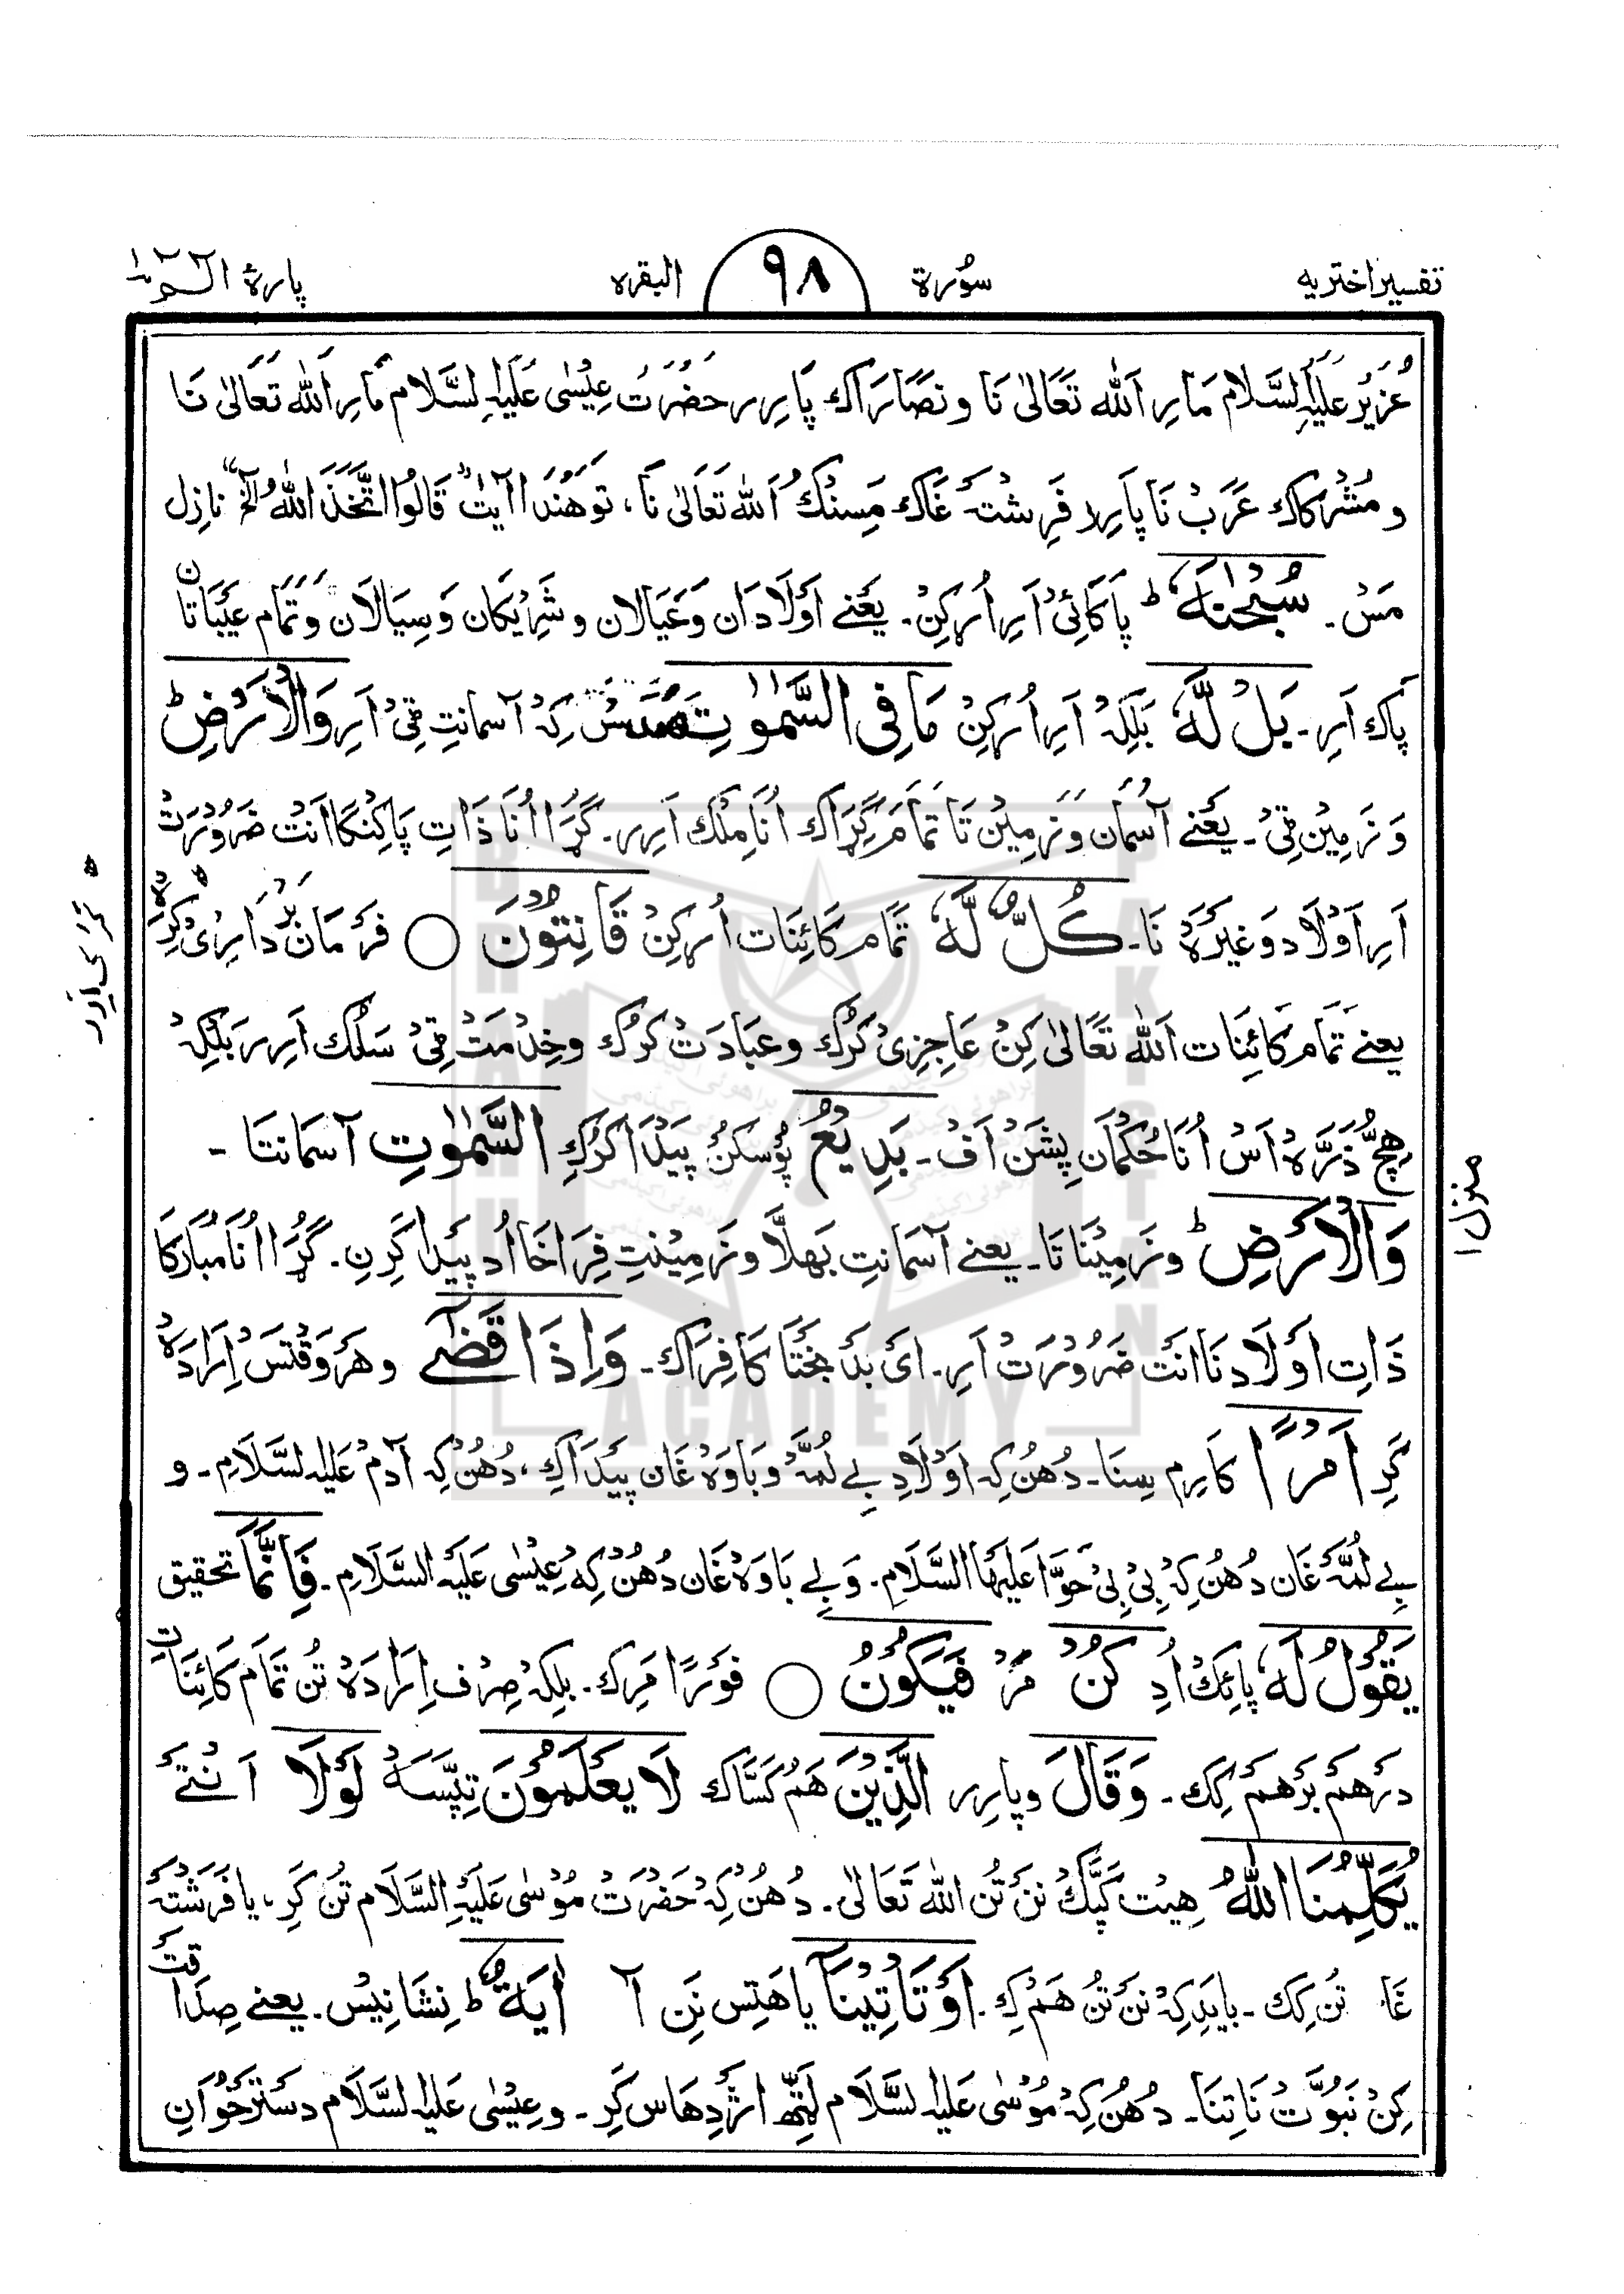 تفسیر اختریه سُورة ٩٨ البقره پارهٔ الٓمّٓ ١
عُزَیْر عَلَیْہِ لسَّلام مَارِ اَللّٰہ تَعَالیٰ نَا و نصَارَاك پَارِرر حَضْرَت عِیْسٰی عَلَیْہِ لسَّلَام مَارِ اَللّٰہ تَعَالیٰ نَا
و مُشْرِکاك عَرَبْ نَا پارِر فَرِشْتَہ غَاك مَسِنْكُ اَللّٰہ تَعَالیٰ نَا، تو هَنْدَا آیتْ” قَالُوا اتَّخَذَ اللّٰهُ الخ“ نازِل
مَسْ ۔ سُبْحٰنَهٗ ؕ پَاکَائِیْ اَرِ اُرکِنْ ۔ یَعْنے اَوْلَادَان وَعَیَالان و شَرِیْکَان وَسِیَالَان وَتَمَام عَیْبَاتَان
پَاك اَرِ ۔ بَلْ لَّهٗ بَلِکہْ اَرِ اُرکِنْ مَا فِی السَّمٰوٰتِ هَنْدَسْ کِہ آسمانتِ قیْ اَرِ وَالْاَرْضِ ؕ
وَ زَمِیْن قیْ ۔ یَعْنے آسْمَان وَ زَمِیْن تَا تَمَام گِڑَاك اُنَا مِلْك اَرِرر ۔ گُڑَا اُنَا ذَاتِ پَاکِنْگا اَنْت ضَرُوْرَتْ
اَرِ اَوْلَاد وَغَیْرَہ نَا ۔ كُلٌّ لَّهٗ تَمَام کَائِنَات اُرکِنْ قَانِتُوْنَ ○ فَرْمَان بَرْدَارِیْ کِرْ
یعنے تَمَام کَائِنَات اَللّٰہ تَعَالیٰ کِنْ عَاجِزِیْ کَرُك وَعِبَادَتْ کَرُك وخِدْمَتْ قیْ سَلُك اَرِرر بَلْکِہْ
هِچّ ذَرَّہ اَسْ اُنَا حُکْمَان پِشَنْ اَفْ ۔ بَدِیْعُ پُوْسکُنْ پَیْدَا کَرُكِ السَّمٰوٰتِ آسمَانتَا ۔
وَالْاَرْضِ ؕ و زَمِیْنَا تَا ۔ یعنے آسمَانتِ بَھلَّا و زَمِیْنتِ فِرَاخَا اُد پَیْدَا کَرِن ۔ گُڑَا اُنَا مُبَارَکَا
ذَاتِ اَوْلَاد نَا اَنْت ضَرُوْرَتْ اَرِ ۔ اَیْ بَدْ بَخْتَا کَافِرَاك ۔ وَ اِذَا قَضٰۤی وهَرْ وَقْتَسْ اِرَادَہ
کَرِ اَمْرًا کَارِم سِنَا ۔ دُهُنْ کِہ اَوْلَادِ بے لُمَّہ و بَاوَہ غَان پَیْدَا کِ، دُهُنْ کِہ آدَمْ عَلَیہ لسَّلَامِ ۔ و
بے لُمَّہ غَان دُهُنْ کِہْ بِیْ بِیْ حَوَّا عَلَیْهَا السَّلَامِ ۔ وَبے بَاوَہ غَان دُهُنْ کِہ عِیْسٰی عَلَیْہِ السَّلَامِ ۔ فَاِنَّمَا تحقیق
یَقُوْلُ لَهٗ پَائِك اُدِ کُنْ مَرْ فَیَكُوْنُ ○ فَوْرًا مَرِك ۔ بلکِہْ صِرْف اِرَادَہ تُن تَمَام کَائِنَاتِ
دَرْهَمْ بَرْهَمْ کِك ۔ وَ قَالَ وپارِرر الَّذِیْنَ هَمْ کَسَّاك لَا یَعْلَمُوْنَ تِپَّسَہْ لَوْلَا اَنْتَے
یُكَلِّمُنَا اللّٰهُ هِیْت کَپَّك نَنْ تُن اَللّٰہ تَعَالیٰ ۔ دُهُنْ کِہ حَضْرَتْ مُوْسٰی عَلَیْہِ السَّلَام تُن کَرِ، یا فَرِشْتَہ
غَا تُن کِك ۔ بایَدِ کِہْ نَنْ تُن هَمْ کِ ۔ اَوْ تَاْتِیْنَاۤ یا هَتِس نَنِ آ اٰیَةٌ ؕ نِشَانِیَسْ ۔ یعنے صِدَاقَت
کِنْ نَبُوَّتْ نَا تِنَا ۔ دُهُنْ کِہْ مُوْسٰی عَلَیہ لسَّلَام لَٹِّھ اَژْدِهَاس کَرِ ۔ و عِیْسٰی عَلَیہ لسَّلَام دَسْتَرخُوَانِ
منزل ١
BRAHUI
ACADEMY
PAKISTAN